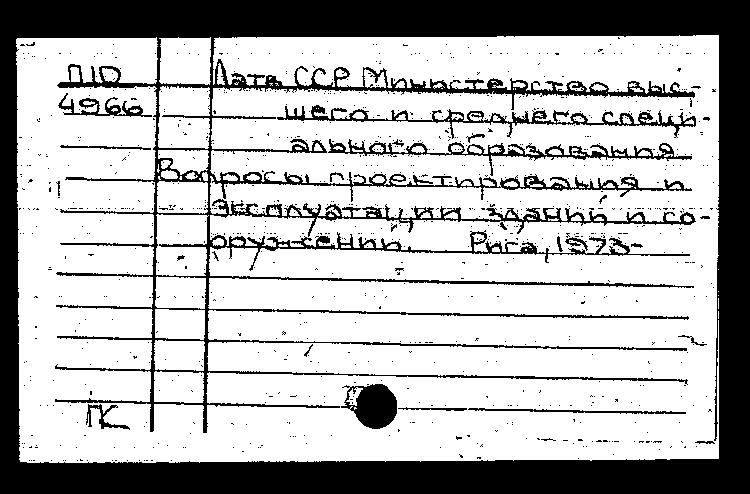 П10 Латв ССР Министерство выс-
4966 шего и среднего специ-
ального образования
Вопросы проектирования и
эксплуатации зданий и со-
оружений. Рига, 1973-
ГК